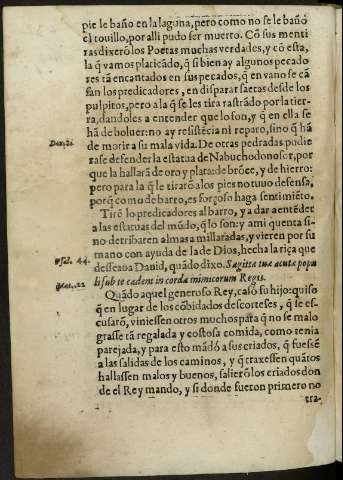 pie le baño en la laguna, pero como no se le bañò
el touillo, por alli pudo ser muerto. Cõ sus menti
ras dixerõ los Poetas muchas verdades, y cõ esta,
la q̃ vamos platicãdo, q̃ si bien ay algunos pecado
res tã encantados en sus pecados, q̃ en vano se cã
san los predicadores, en disparar saetas desde los
pulpitos, pero a la q̃ se les tira rastrãdo por la tier-
ra, dandoles a entender que lo son, y q̃ en ella se
hã de boluer: no ay resistẽcia ni reparo, sino q̃ hã
de morir a su mala vida. De otras pedradas podie
Dan. 2.
rase defender la estatua de Nabuchodonosor, por
que la hallarã de oro y plata: de brõce, y de hierro:
pero para la q̃ le tirarõ a los pies no tuuo defensa,
porq̃ como de barro, es forçoso haga sentimiẽto.
Tirẽ lo predicadores al barro, y a dar a entẽder
a las estatuas del mũdo, q̃ lo son: y a mi quenta si-
no derribaren almas a millaradas, y vieren por su
mano con ayuda de la de Dios, hecha la riça que
Psal. 44.
desseaua Dauid, quãdo dixo. Sagittæ tuæ acutæ popu
li sub te cadent in corda inimicorum Regis.
Mat. 22
Quãdo aquel generoso Rey, casò su hijo: quiso
q̃ en lugar de los cõbidados descorteses, q̃ se es-
cusarõ, viniessen otros muchos para q̃ no se malo
grasse tã regalada y costosa comida, como tenia
parejada, y para esto mãdò a sus criados, q̃ fuessẽ
a las salidas de los caminos, y q̃ traxessen quãtos
hallassen malos y buenos, salierõ los criados don
de el Rey mando, y si donde fueron primero no
tra-